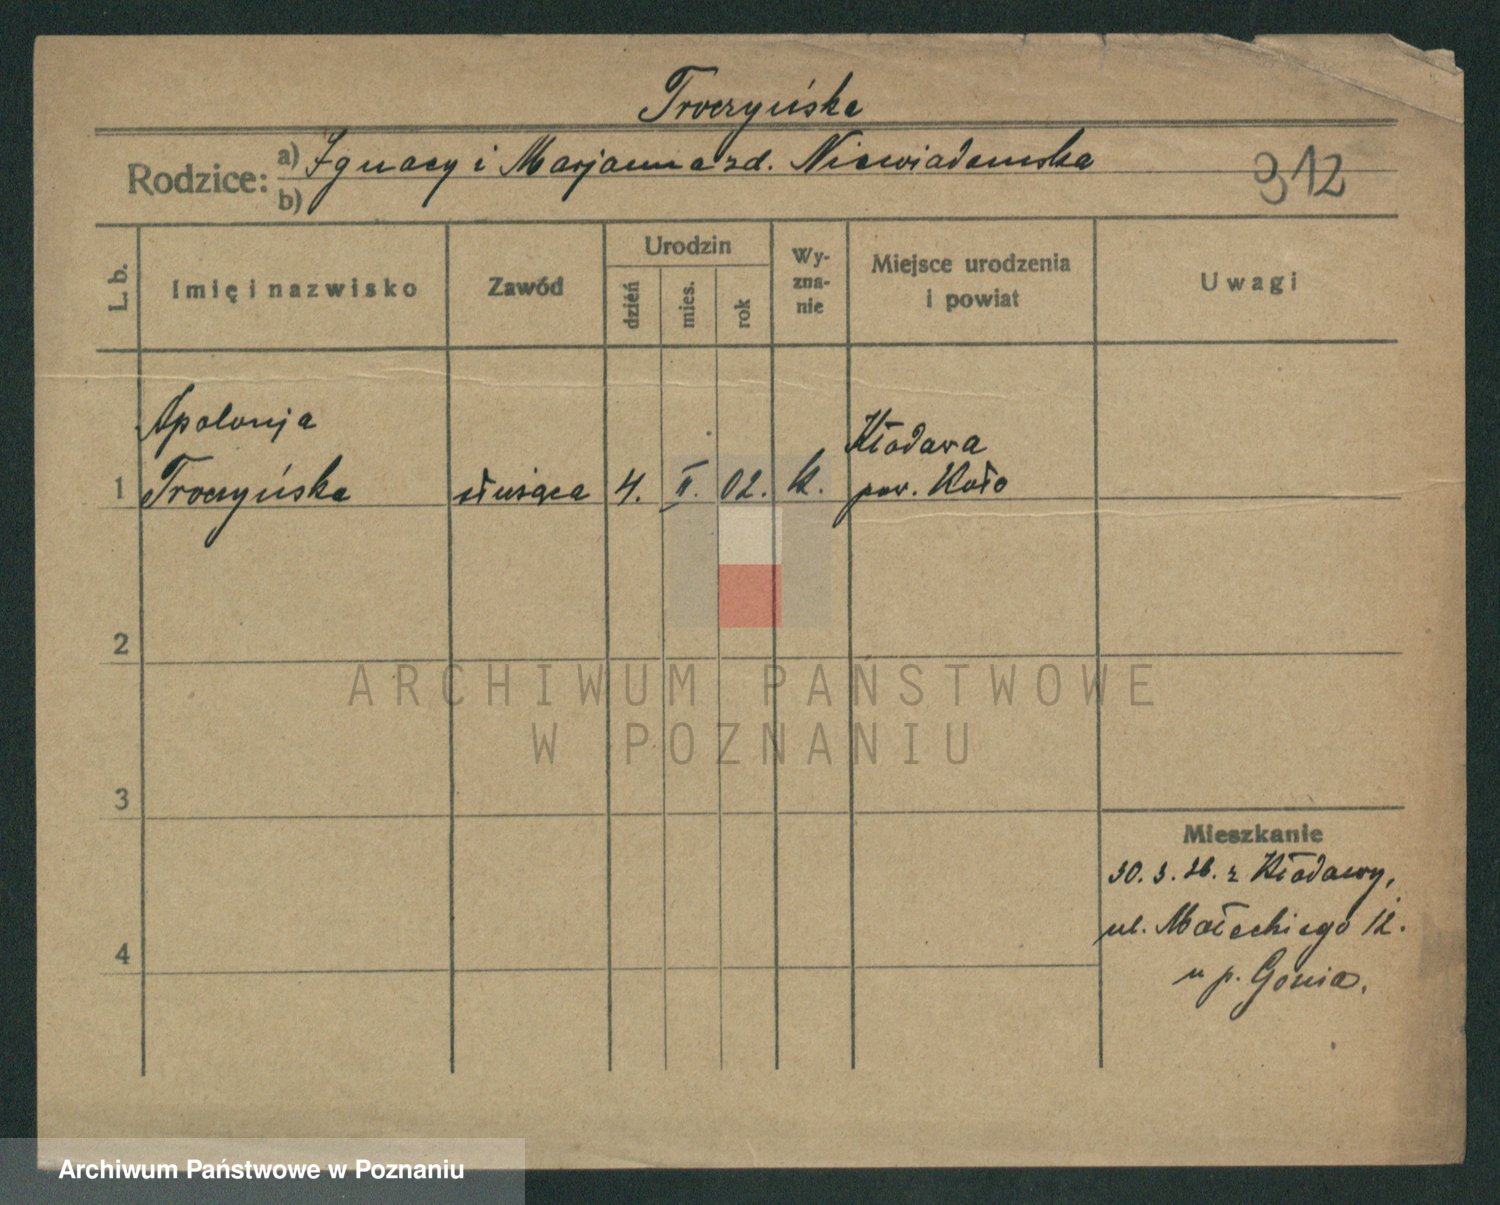 Troczyńska
Rodzice: a) Ignacy i Marjanna zd. Niewiadomska
b)
312
L. b. Imię i nazwisko Zawód Urodzin dzień mies. rok Wy-zna-nie Miejsce urodzenia i powiat Uwagi
Apolonja
Kłodawa
1 Troczyńska służąca 4. II. 02. k. pow. Koło
2
ARCHIWUM PAŃSTWOWE
W POZNANIU
3
Mieszkanie
30. 3. 26. z Kłodawy,
ul. Małeckiego 12.
4
u p. Gonia.
Archiwum Państwowe w Poznaniu